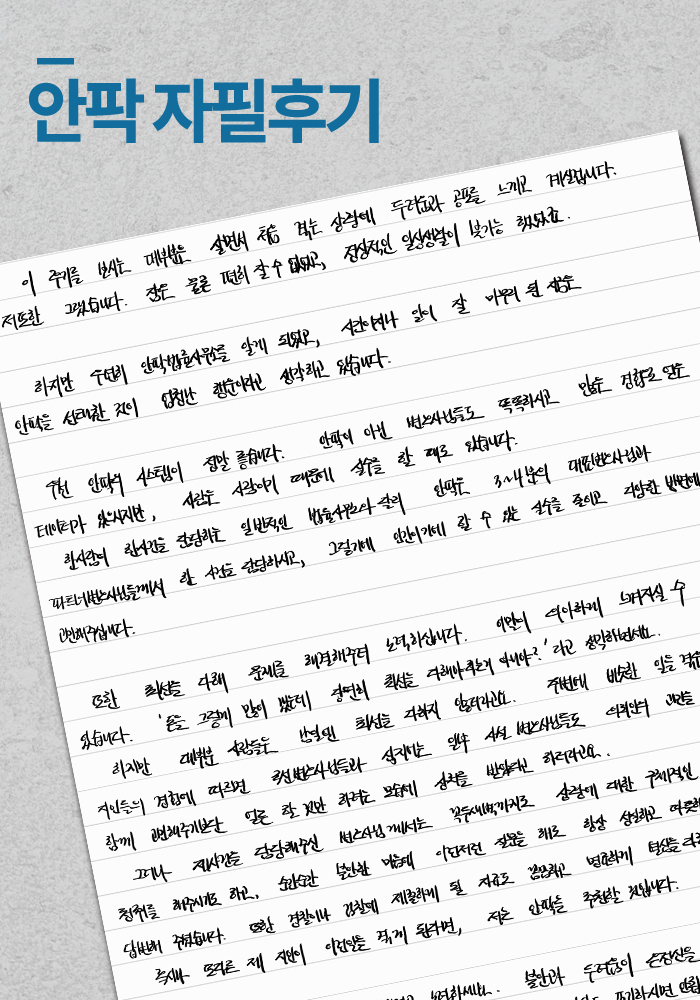 안팍 자필후기
이 후기를 보시는 대부분은 살면서 처음 겪는 상황에 두려움과 공포를 느끼고 계실겁니다.
저또한 그랬습니다. 잠은 물론 편히 잘 수 없었고, 정상적인 일상생활이 불가능 했었죠.
하지만 우연히 안팍법률사무소를 알게 되었고, 시간이지나 일이 잘 마무리 된 지금은
안팍을 선택한 것이 엄청난 행운이라고 생각하고 있습니다.
우선 안팍의 시스템이 정말 좋습니다. 안팍이 아닌 변호사님들도 똑똑하시고 많은 경험으로 얻은
데이터가 있으시지만, 사람은 사람이기 때문에 실수를 할 때도 있습니다.
한사람이 한사건을 담당하는 일반적인 법률사무소와 달리 안팍은 3~4분의 대표변호사님과
파트너변호사님들께서 한 사건을 담당하시고, 그렇기에 인간이기에 할 수 있는 실수를 줄이고 다양한 방면에
고민해주십니다.
또한 최선을 다해 문제를 해결해주려 노력하십니다. 이말이 의아하게 느껴지실 수
있습니다. '돈을 그렇게 많이 받는데 당연히 최선을 다해야 하는거 아니야?' 라고 생각하실텐데요.
하지만 대부분 사람들은 받은만큼 최선을 다하지 않더라고요. 주변에 비슷한 일을 겪은
지인들의 경험에 따르면 국선변호사님들과 심지어는 일부 사선 변호사님들도
함께 고민해주기보단 일로 할 것만 하려는 모습에 상처를 받았다고 하더라고요.
그러나 제사건을 담당해주신 변호사님께서는 꼭두새벽까지도 상황에 대한 구체적인
청취를 해주시기도 하고, 순간순간 불안한 마음에 이런저런 질문을 해도 항상 성실하고
답변해 주셨습니다. 또한 경찰이나 검찰에 제출하게 될 자료도 꼼꼼하고 명료하게
혹시나 또다른 제 지인이 이런일을 겪게 된다면, 저는 안팍을 추천할 것입니다.
불안과 두려움이